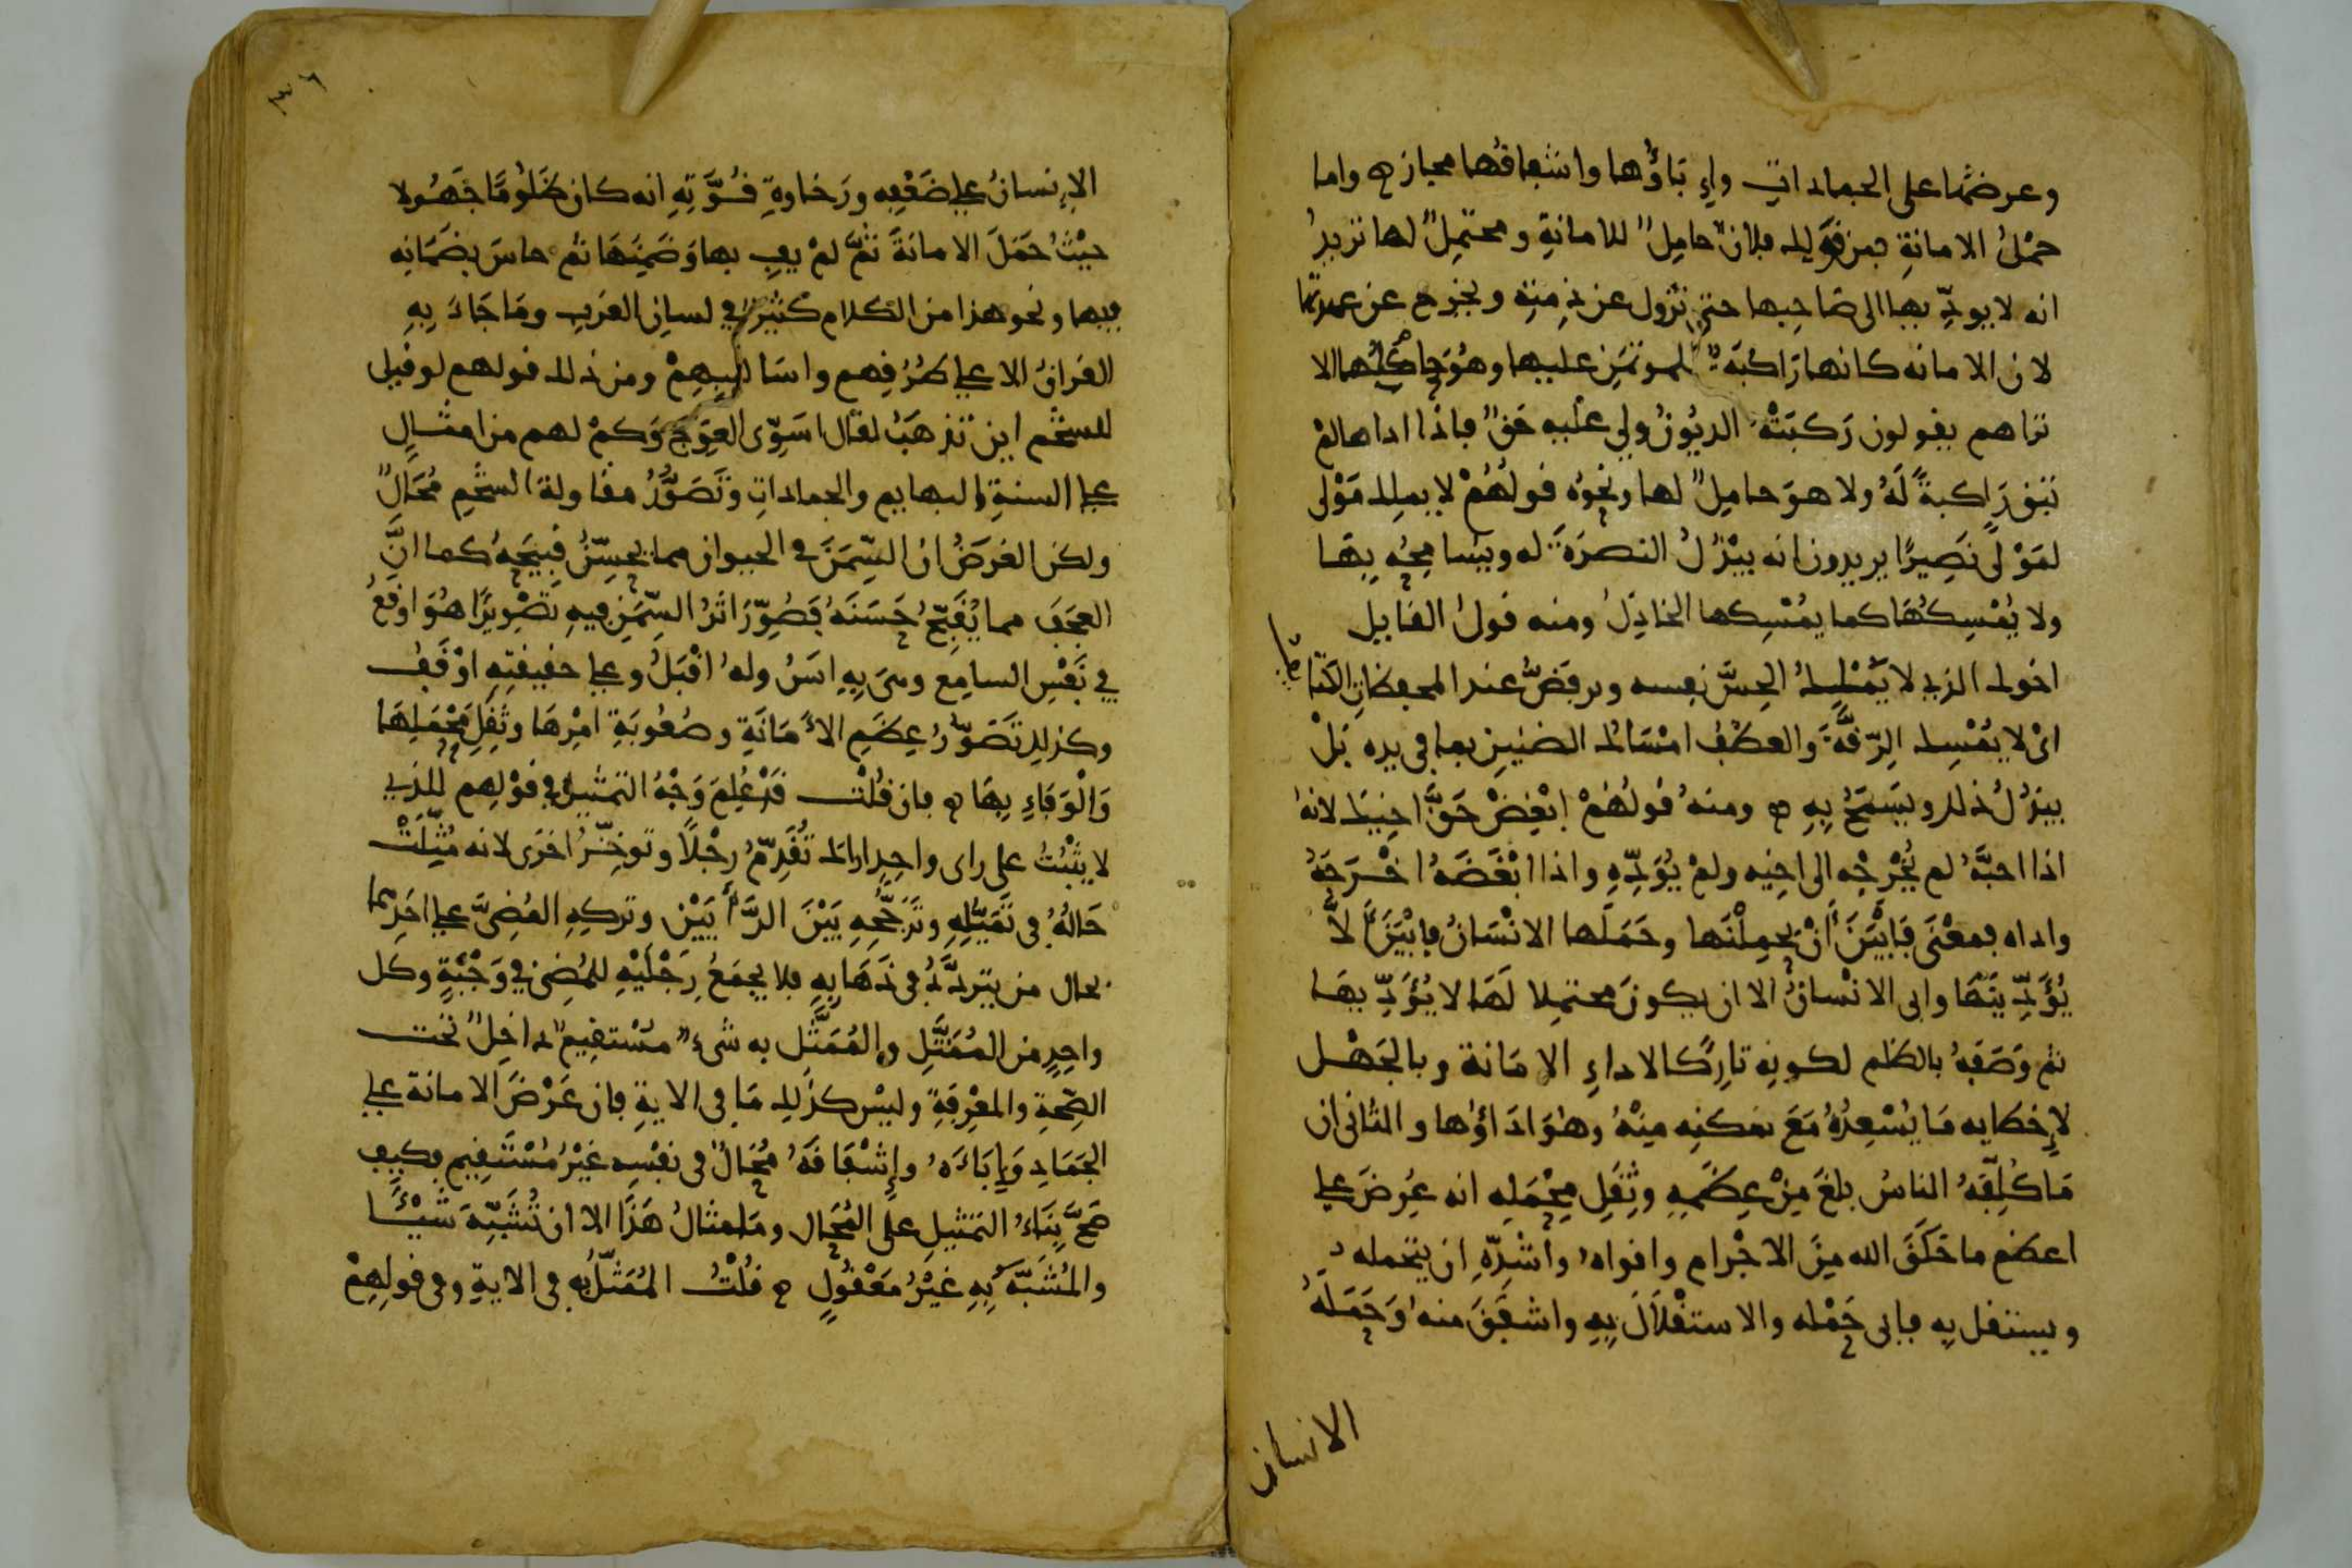 وعرضها على الجمادات وإباؤها واشفاقها مجاز ه واما
حمل الامانة فمن قولك فلان حامل للامانة ومحتمل لها تريد
انه لا يودّيها الى صاحبها حتى تزول عن ذمته ويخرج عن عهدتها
لان الامانه كانها راكبة للموتمن عليها وهو حاملها الا
تراهم يقولون ركبته الديون ولي عليه حق فاذا اداها لم
تبق راكبة له ولا هو حامل لها ونحوه قولهم لا يملك مولى
لمولى نصيرا يريدون انه يبذل النصرة له ويسامحه بها
ولا يمسكها كما يمسكها الخاذل ومنه قول القايل
اخوك الذي لا تملك الحس نفسه وترفض عند المحفظات الكتايف
اي لا يمسك الرقة والعطف امساك الضنين بما في يده بل
يبذل ذلك ويسمح به ه ومنه قولهم ابغض حق اخيك لانه
اذا احبه لم يخرجه الى اخيه ولم يؤدّه واذا ابغضه اخرجه
واداه فمعنى فابين ان يحملنها وحملها الانسان فابين الا
يؤدّينها وابى الانسان الا ان يكون محتملا لها لا يؤدّيها
ثم وصفه بالظلم لكونه تاركا لاداء الامانة وبالجهل
لإخطايه ما يسعده مع تمكنه منه وهو اداؤها والثاني ان
ما كلّفه الناس بلغ من عظمه وثقل محمله انه عرض على
اعظم ما خلق الله من الاجرام واقواه واشدّه ان يتحمله
ويستقل به فابى حمله والاستقلال به واشفق منه وحمله
الانسان
٣٦
الإنسان على ضعفه ورخاوة قوّته انه كان ظلوما جهولا
حيث حمل الامانة ثم لم يف بها وضمنها ثم خاس بضمانه
فيها ونحو هذا من الكلام كثير في لسان العرب وما جاء به
القران الا على طرقهم واساليبهم ومن ذلك قولهم لو قيل
للشحم اين تذهب لقال اسوّي العوج وكم لهم من امثال
على السنة البهايم والجمادات وتصوّر مقاولة الشحم محال
ولكن الغرض ان السّمن في الحيوان مما يحسّن قبيحه كما انّ
العجف مما يقبّح حسنه فصوّر اثر السّمن فيه تصويرا هو اوقع
في نفس السامع وهي به انس وله اقبل وعلى حقيقته اوقف
وكذلك تصوّر عظم الأمانة وصعوبة امرها وثقل محملها
والوفاء بها ه فان قلت قد علم وجه التمثيل في قولهم للذي
لا يثبت على راى واحد اراك تقدّم رجلا وتوخّر اخرى لانه مثّلت
حاله في تميّله وترجّحه بين الرّأيين وتركه المضيّ على احدهما
بحال من يتردّد في ذهابه فلا يجمع رجليه للمضي في وجهة وكل
واحد من الممثّل والممثّل به شيء مستقيم داخل تحت
الصّحة والمعرفة وليس كذلك ما في الاية فان عرض الامانة على
الجماد وإباءه وإشفاقه محال في نفسه غير مستقيم فكيف
صحّ بناء التمثيل على المحال وما مثال هذا الا ان تشبّه شيئا
والمشبّه به غير معقول ه قلت الممثّل به في الاية وفي قولهم